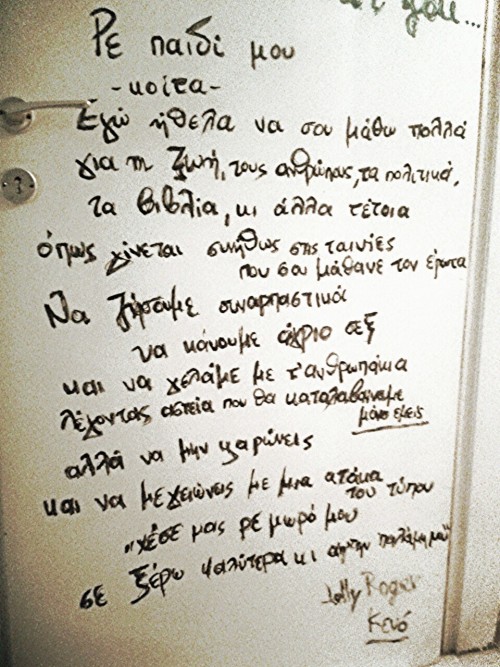 you...
Ρε παιδί μου
-κοίτα-
Εγώ ήθελα να σου μάθω πολλά
για τη ζωή, τους ανθρώπους, τα πολιτικά,
τα βιβλία, κι άλλα τέτοια
όπως γίνεται συνήθως στις ταινίες
που σου μάθανε τον έρωτα
Να ζήσουμε συναρπαστικά
να κάνουμε άγριο σεξ
και να γελάμε με τ'ανθρωπάκια
λέγοντας αστεία που θα καταλαβαίναμε
μόνο εμείς
αλλά να μην γαρώνεις
και να με γειώνεις με μια ατάκα
του τύπου
"χέσε μας ρε μωρό μου
σε ξέρω καλύτερα κι απ'την παλάμη μου"
Jolly Roger
Κενό